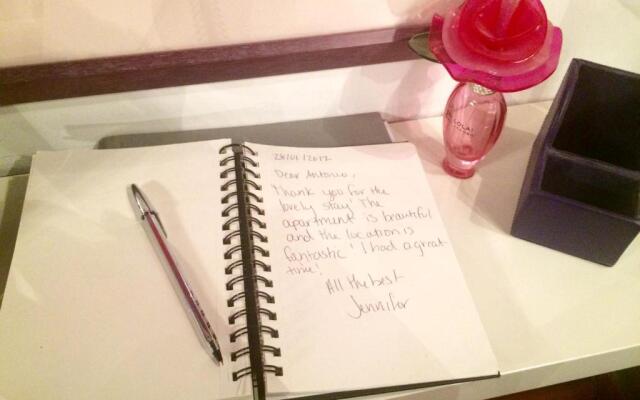 28/01/2017
Dear Antonio,
Thank you for the
lovely stay! The
apartment is beautiful
and the location is
fantastic! I had a great
time!
All the best
Jennifer